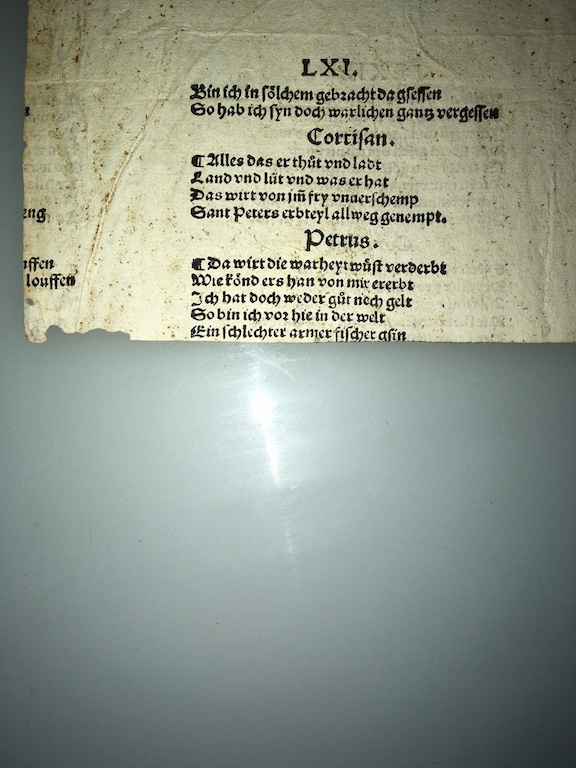 LXI.
Bin ich in sölchem gebracht da gsessen
So hab ich syn doch warlichen gantz vergessen
Cortisan.
¶ Alles das er thůt vnd ladt
Land vnd lüt vnd was er hat
Das wirt von jm̄ fry vnuerschemp
Sant Peters erbteyl allweg genempt.
Petrus.
¶ Da wirt die warheyt wůst verderbt
Wie könd ers han von mir ererbt
Ich hat doch weder gůt noch gelt
So bin ich vor hie in der welt
Ein schlechter armer fischer gsin
eng
ffen
louffen